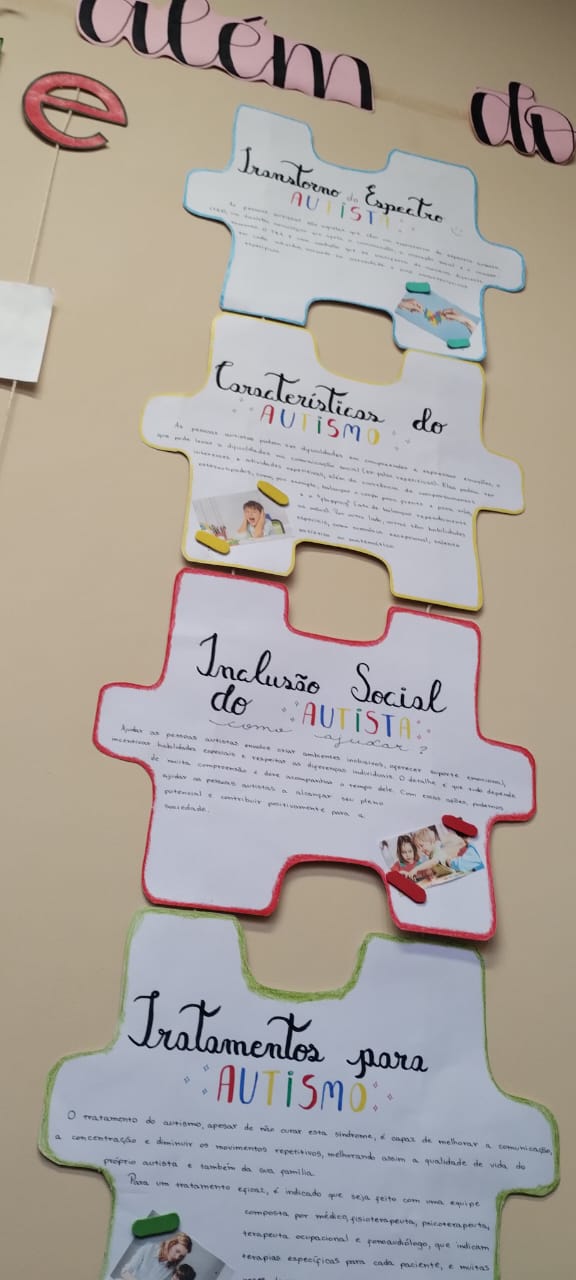 além do
e
Transtorno do Espectro
AUTISTA
As pessoas autistas são aquelas que têm um transtorno do espectro autista
Características do
AUTISMO
As pessoas autistas podem ter dificuldades em compreender e expressar emoções, o
que pode levar a dificuldades na comunicação social
interesses e atividades repetitivas, além da existência de comportamentos
estereotipados, como, por exemplo, balançar o corpo para frente e para trás,
e o "flapping" (ato de balançar repetidamente
as mãos). Por outro lado, outros têm habilidades
especiais, como memória excepcional, talento
matemática.
Inclusão Social
do AUTISTA
como ajudar?
Ajudar as pessoas autistas envolve criar ambientes inclusivos, oferecer suporte emocional,
incentivar habilidades especiais e respeitar as diferenças individuais. O detalhe é que tudo depende
de muita compreensão e deve acompanhar o tempo dele. Com essas ações, podemos
ajudar as pessoas autistas a alcançar seu pleno
potencial e contribuir positivamente para a
sociedade.
Tratamentos para
AUTISMO
O tratamento do autismo, apesar de não curar esta síndrome, é capaz de melhorar a comunicação,
a concentração e diminuir os movimentos repetitivos, melhorando assim a qualidade de vida do
próprio autista e também da sua família.
Para um tratamento eficaz, é indicado que seja feito com uma equipe
composta por médico, fisioterapeuta, psicoterapeuta,
terapeuta ocupacional e fonoaudiólogo, que indicam
terapias específicas para cada paciente, e muitas